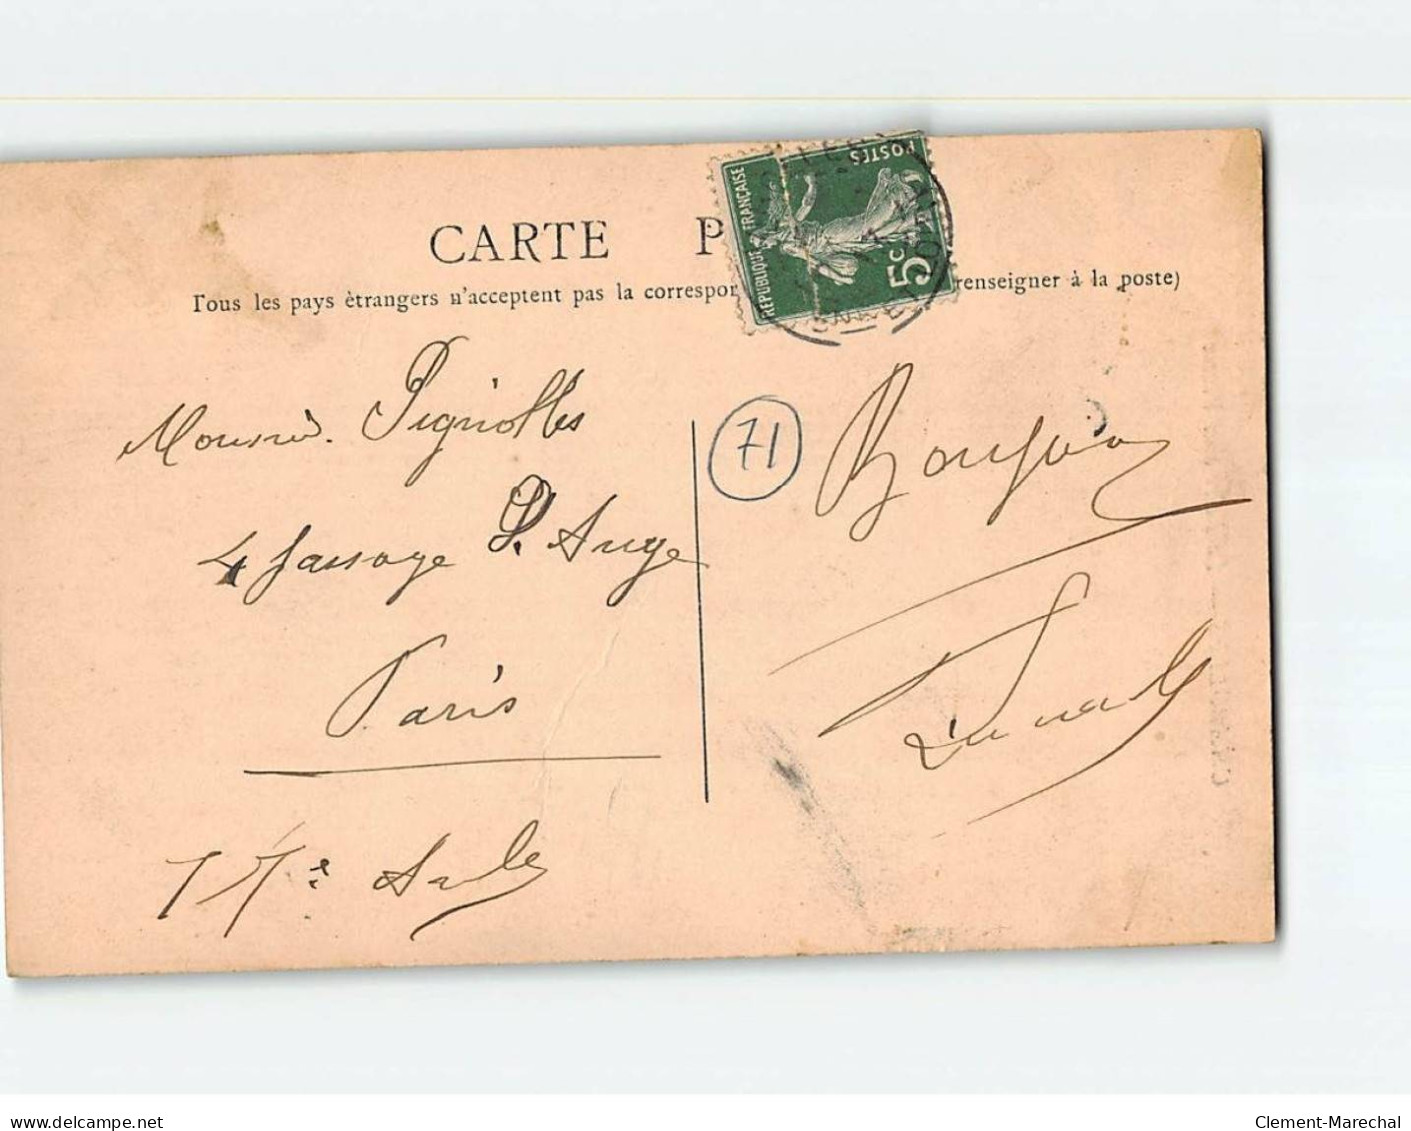 CARTE P
Tous les pays ètrangers n'acceptent pas la correspon
renseigner à la poste)
RÉPUBLIQUE FRANÇAISE
POSTES
5c
Monsieur Pignolles
4 passage St. Ange
Paris
17e
71
Bonjour
delcampe.net
Clement-Marechal